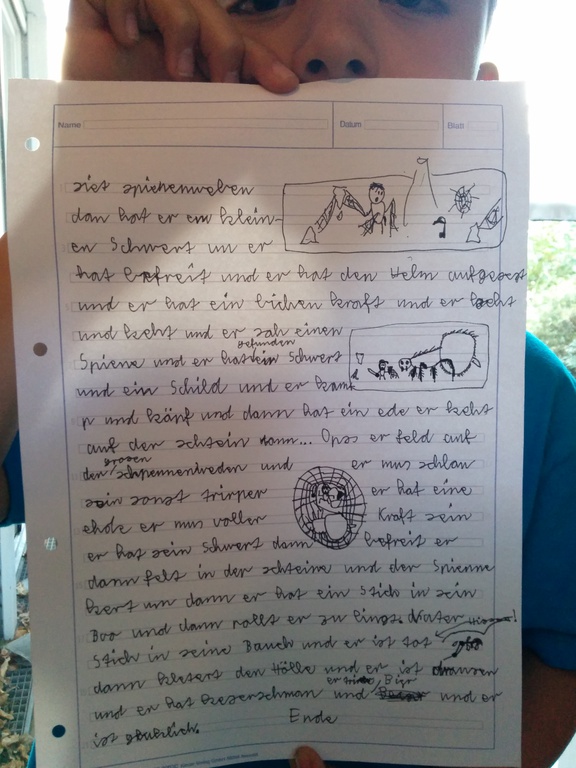 Name Datum Blatt
siet spienenweben
dan hat er ein klein-
en Schwert un er
hat befreit und er hat den Helm aufgesezt
und er hat ein bichen kraft und er keht
und keht und er sah einen
Spiene und er hat gefunden ein Schwert
und ein Schild und er kam
und kämpf und dann hat ein ede er keht
auf der schtein dann... Opss er feld auf
den grosen und er mus schlau
sein sonst er hat eine
er mus voller Kraft sein
er hat sein Schwert dann befreit er
dann felt in der schteine und der Spienne
kert um dann er hat ein Stich in sein
Boo und dann rollt er zu
Stich in seine Bauch und er ist tot
dann kletert den Hölle und er ist drausen
und er hat und er Bier und er
ist
Ende